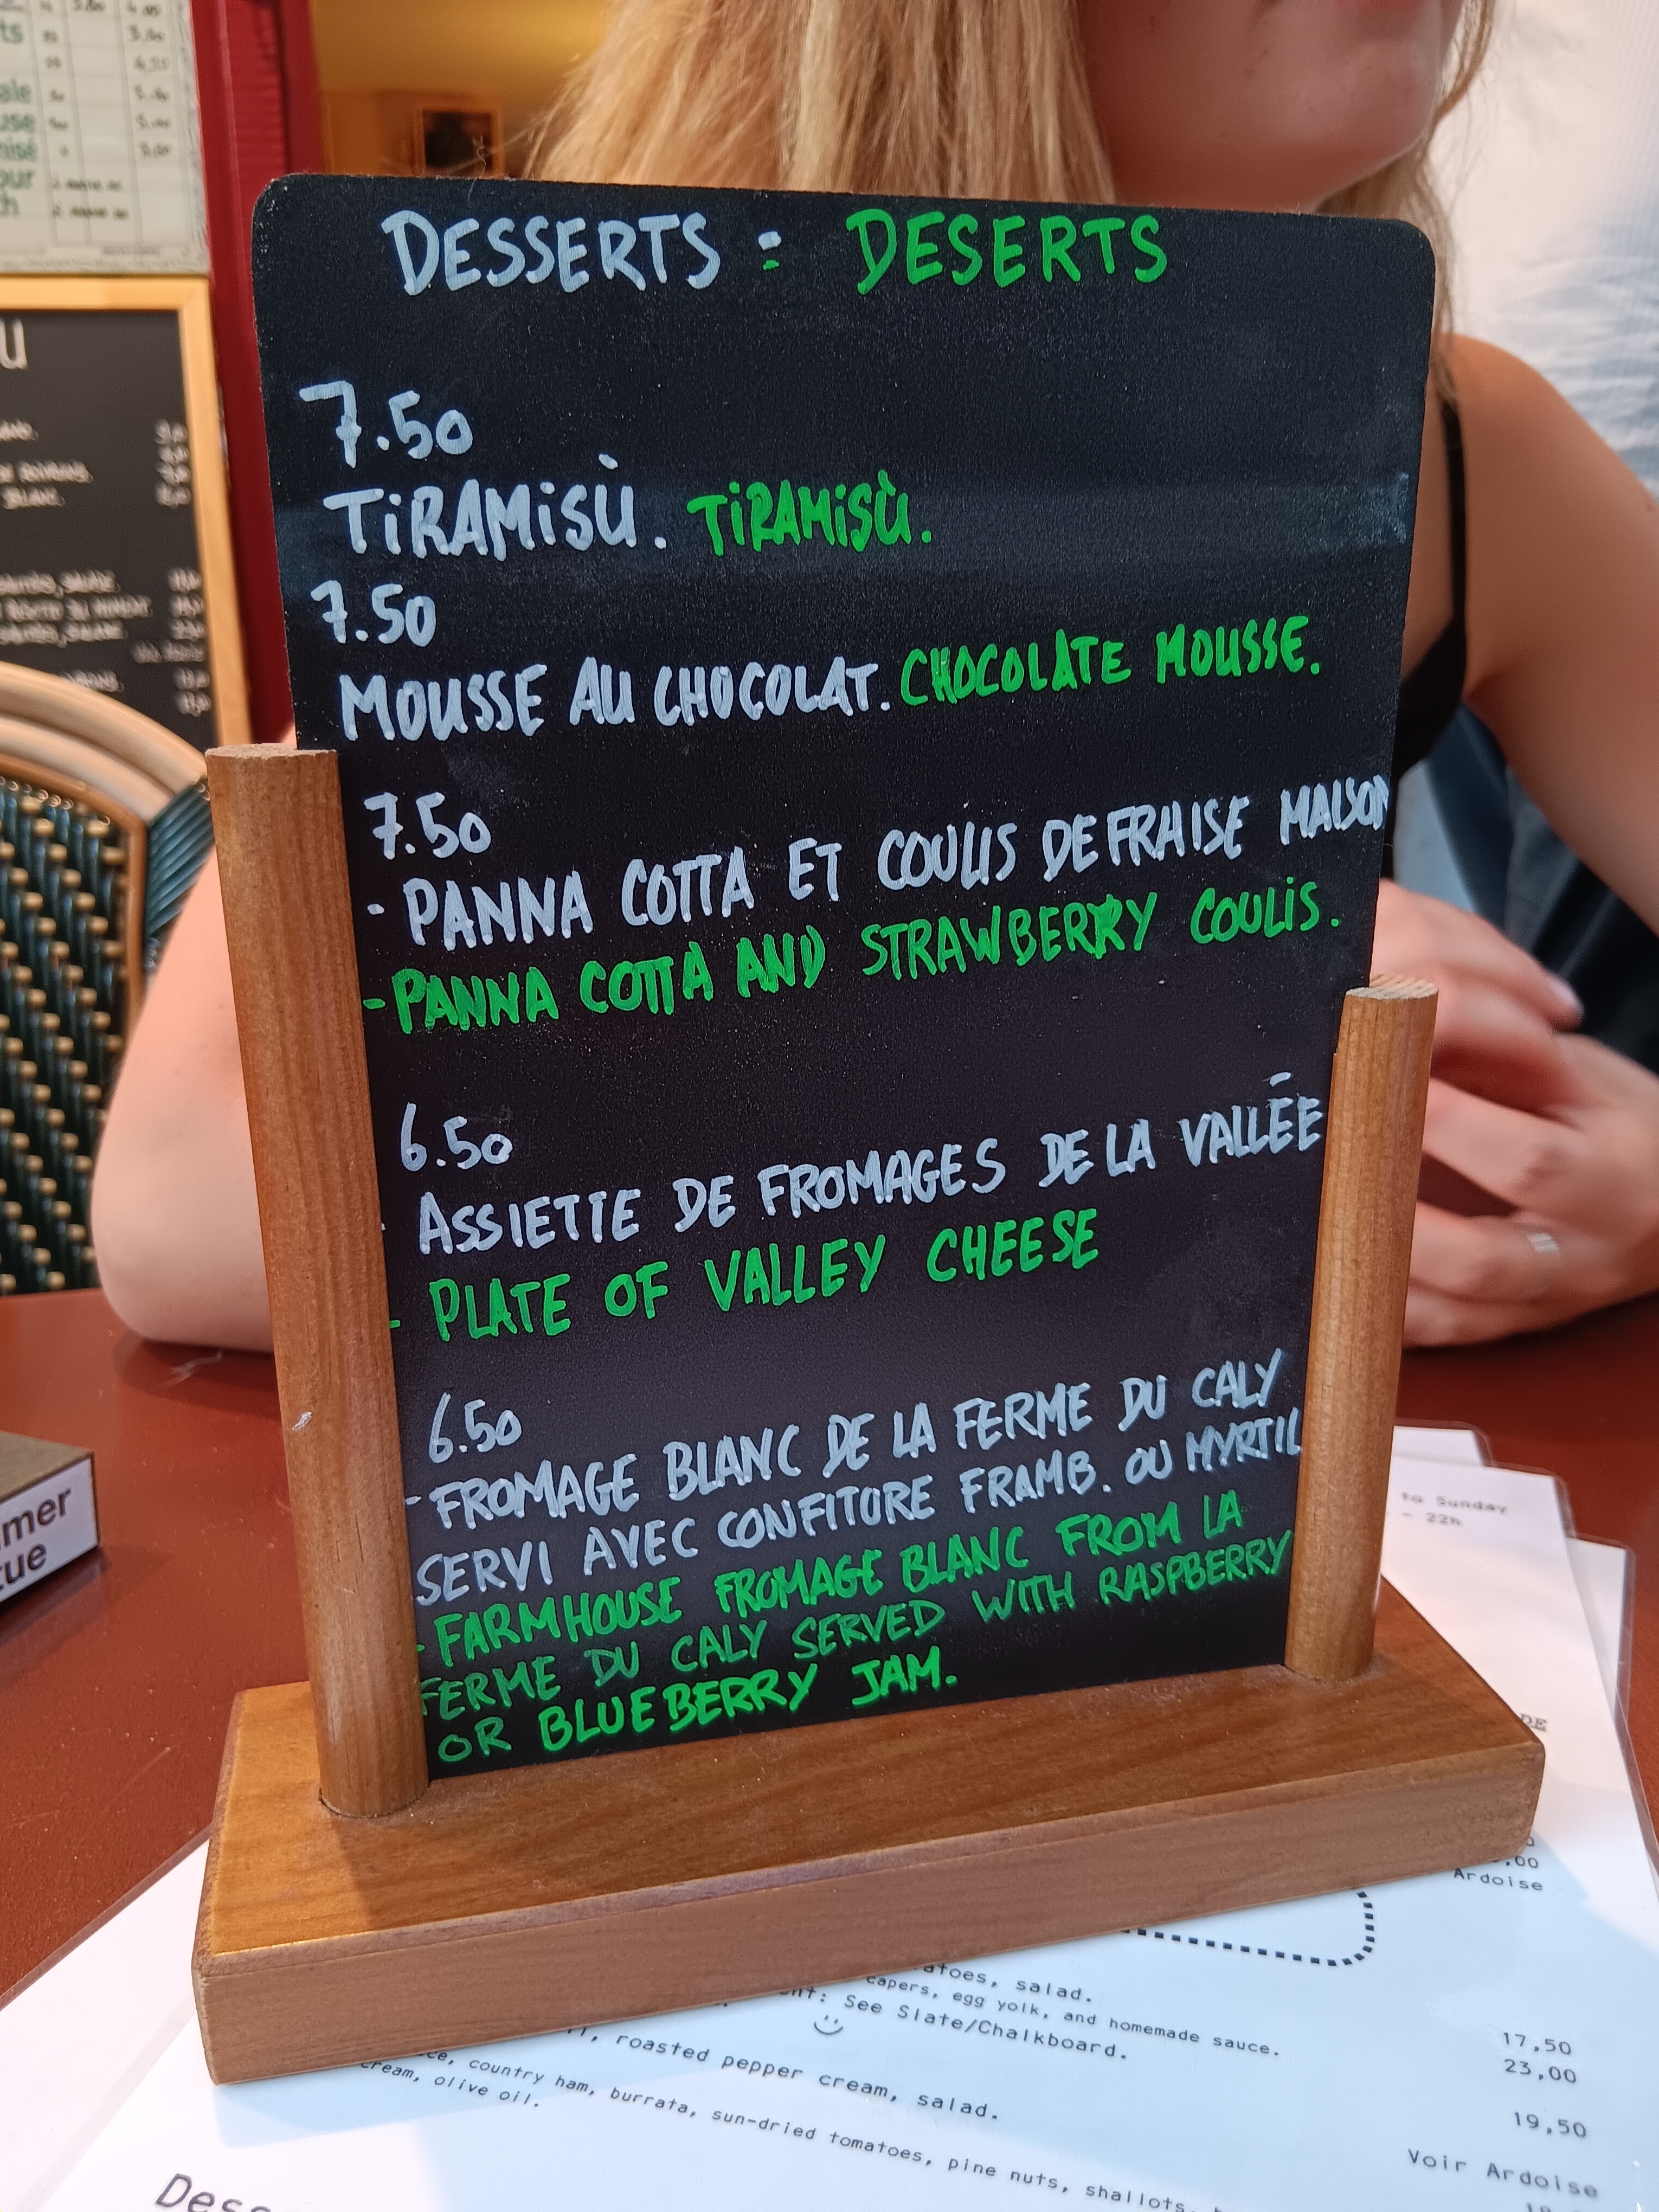 DESSERTS : DESERTS
7.50
TiRAMiSÙ. TiRAMiSÙ.
7.50
MOUSSE AU CHOCOLAT. CHOCOLATE MOUSSE.
7.50
- PANNA COTTA ET COULIS DE FRAISE MAISON
- PANNA COTTA AND STRAWBERRY COULiS.
6.50
- ASSIETTE DE FROMAGES DE LA VALLÉE
- PLATE OF VALLEY CHEESE
6.50
- FROMAGE BLANC DE LA FERME DU CALY
SERVI AVEC CONFITURE FRAMB. OU MYRTIL
- FARMHOUSE FROMAGE BLANC FROM LA
FERME DU CALY SERVED WITH RASPBERRY
OR BLUEBERRY JAM.
mer
tue
to Sunday
- 22h
DE
.00
Ardoise
atoes, salad.
capers, egg yolk, and homemade sauce.
nt: See Slate/Chalkboard.
17,50
23,00
roasted pepper cream, salad.
19,50
country ham, burrata, sun-dried tomatoes, pine nuts, shallots,
Voir Ardoise
cream, olive oil.
Dess